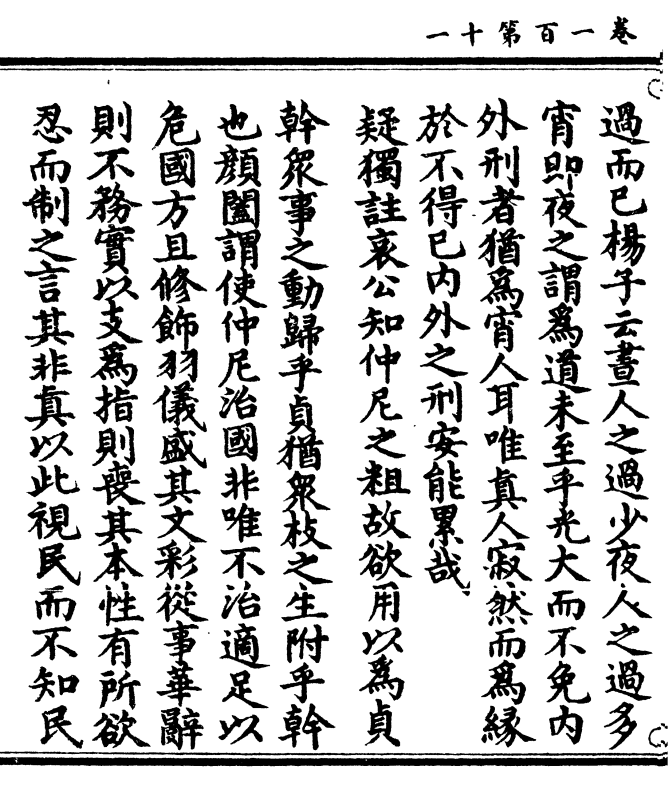 卷一百第十一
過而已楊子云晝人之過少夜人之過多
宵即夜之謂爲道未至乎光大而不免內
外刑者猶爲宵人耳唯眞人寂然而爲緣
於不得已內外之刑安能累哉
疑獨註哀公知仲尼之粗故欲用以爲貞
幹衆事之動歸乎貞猶衆枝之生附乎幹
也顔闔謂使仲尼治國非唯不治適足以
危國方且修飾羽儀盛其文彩從事華辭
則不務實以支爲指則喪其本性有所欲
忍而制之言其非眞以此視民而不知民